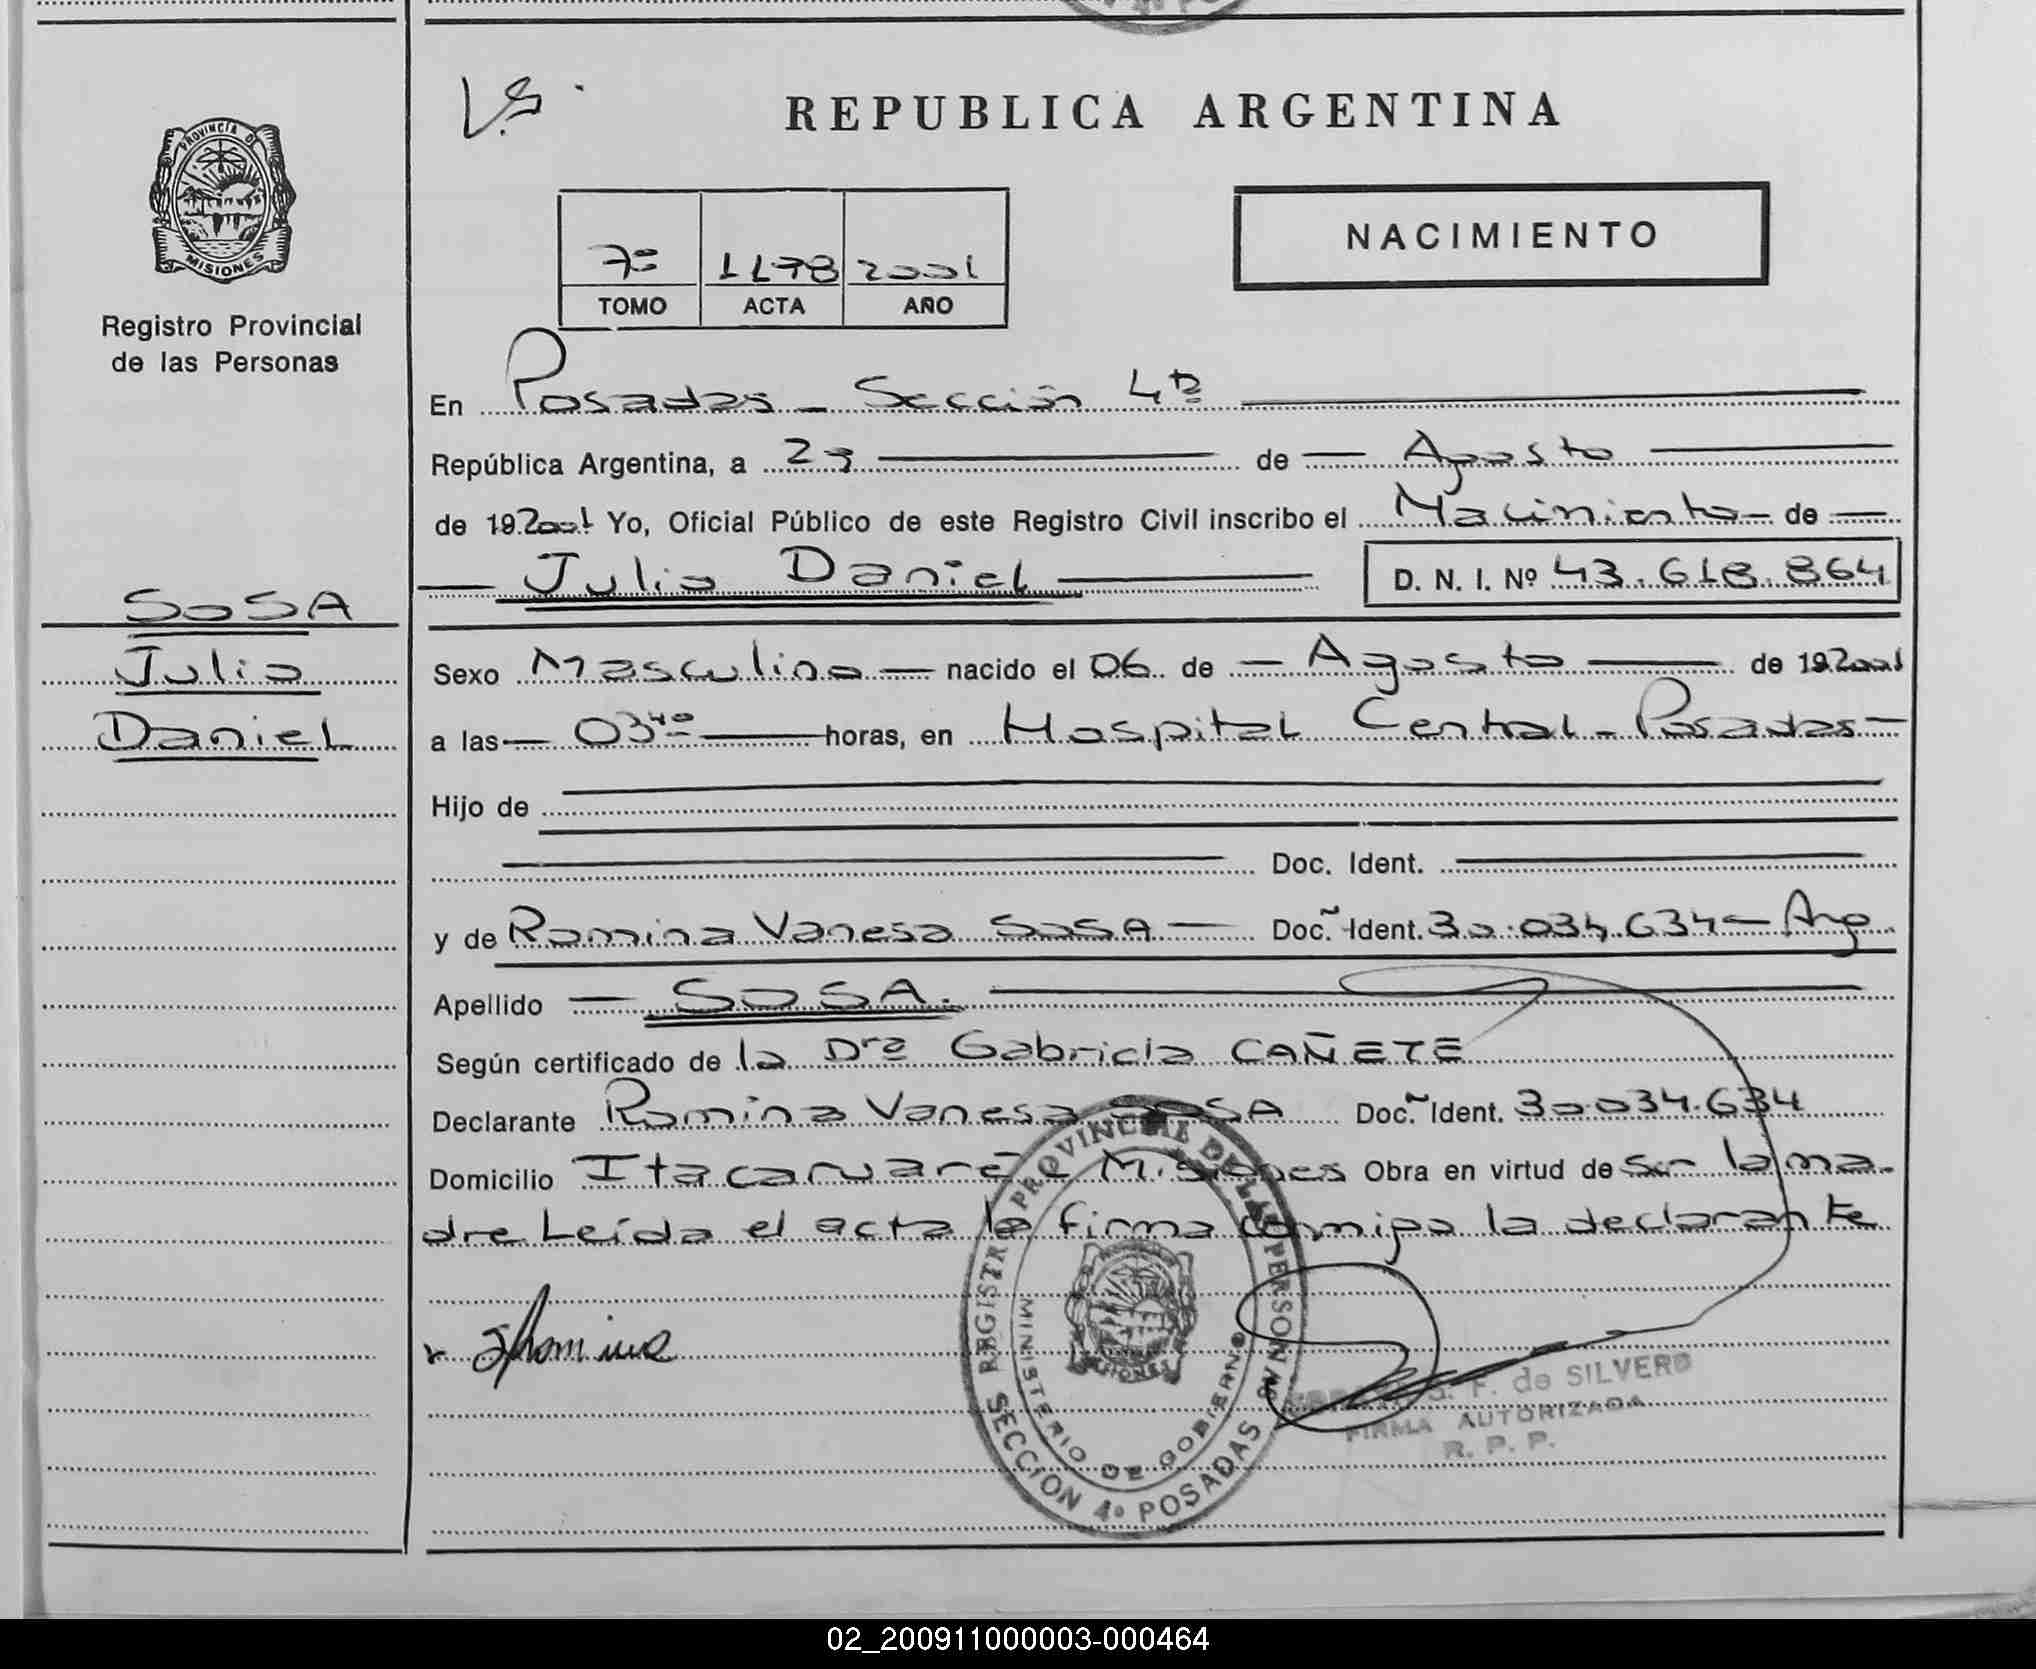 V.S.
REPUBLICA ARGENTINA
PROVINCIA DE
MISIONES
Registro Provincial
de las Personas
NACIMIENTO
7º 1178 2001
TOMO ACTA AÑO
En Posadas - Sección 4ta
República Argentina, a 23 de Agosto
de 192001 Yo, Oficial Público de este Registro Civil inscribo el Nacimiento de
Julio Daniel D. N. I. Nº 43.618.864
SOSA
Julio
Daniel
Sexo Masculino nacido el 06 de Agosto de 192001
a las 03⁴⁰ horas, en Hospital Central - Posadas
Hijo de
Doc. Ident.
y de Romina Vanesa SOSA Doc. Ident. 30.034.634 - Arg
Apellido SOSA.
Según certificado de la Dra Gabricia CAÑETE
Declarante Romina Vanesa SOSA Doc. Ident. 30.034.634
Domicilio Itacaruaré - Misiones Obra en virtud de ser la ma-
dre Leída el acta la firma conmigo la declarante
Romina
REGISTRO PROVINCIAL DE LAS PERSONAS
MINISTERIO DE GOBIERNO
MISIONES
SECCION 4º POSADAS
G. F. de SILVERO
FIRMA AUTORIZADA
R. P. P.
02_200911000003-000464